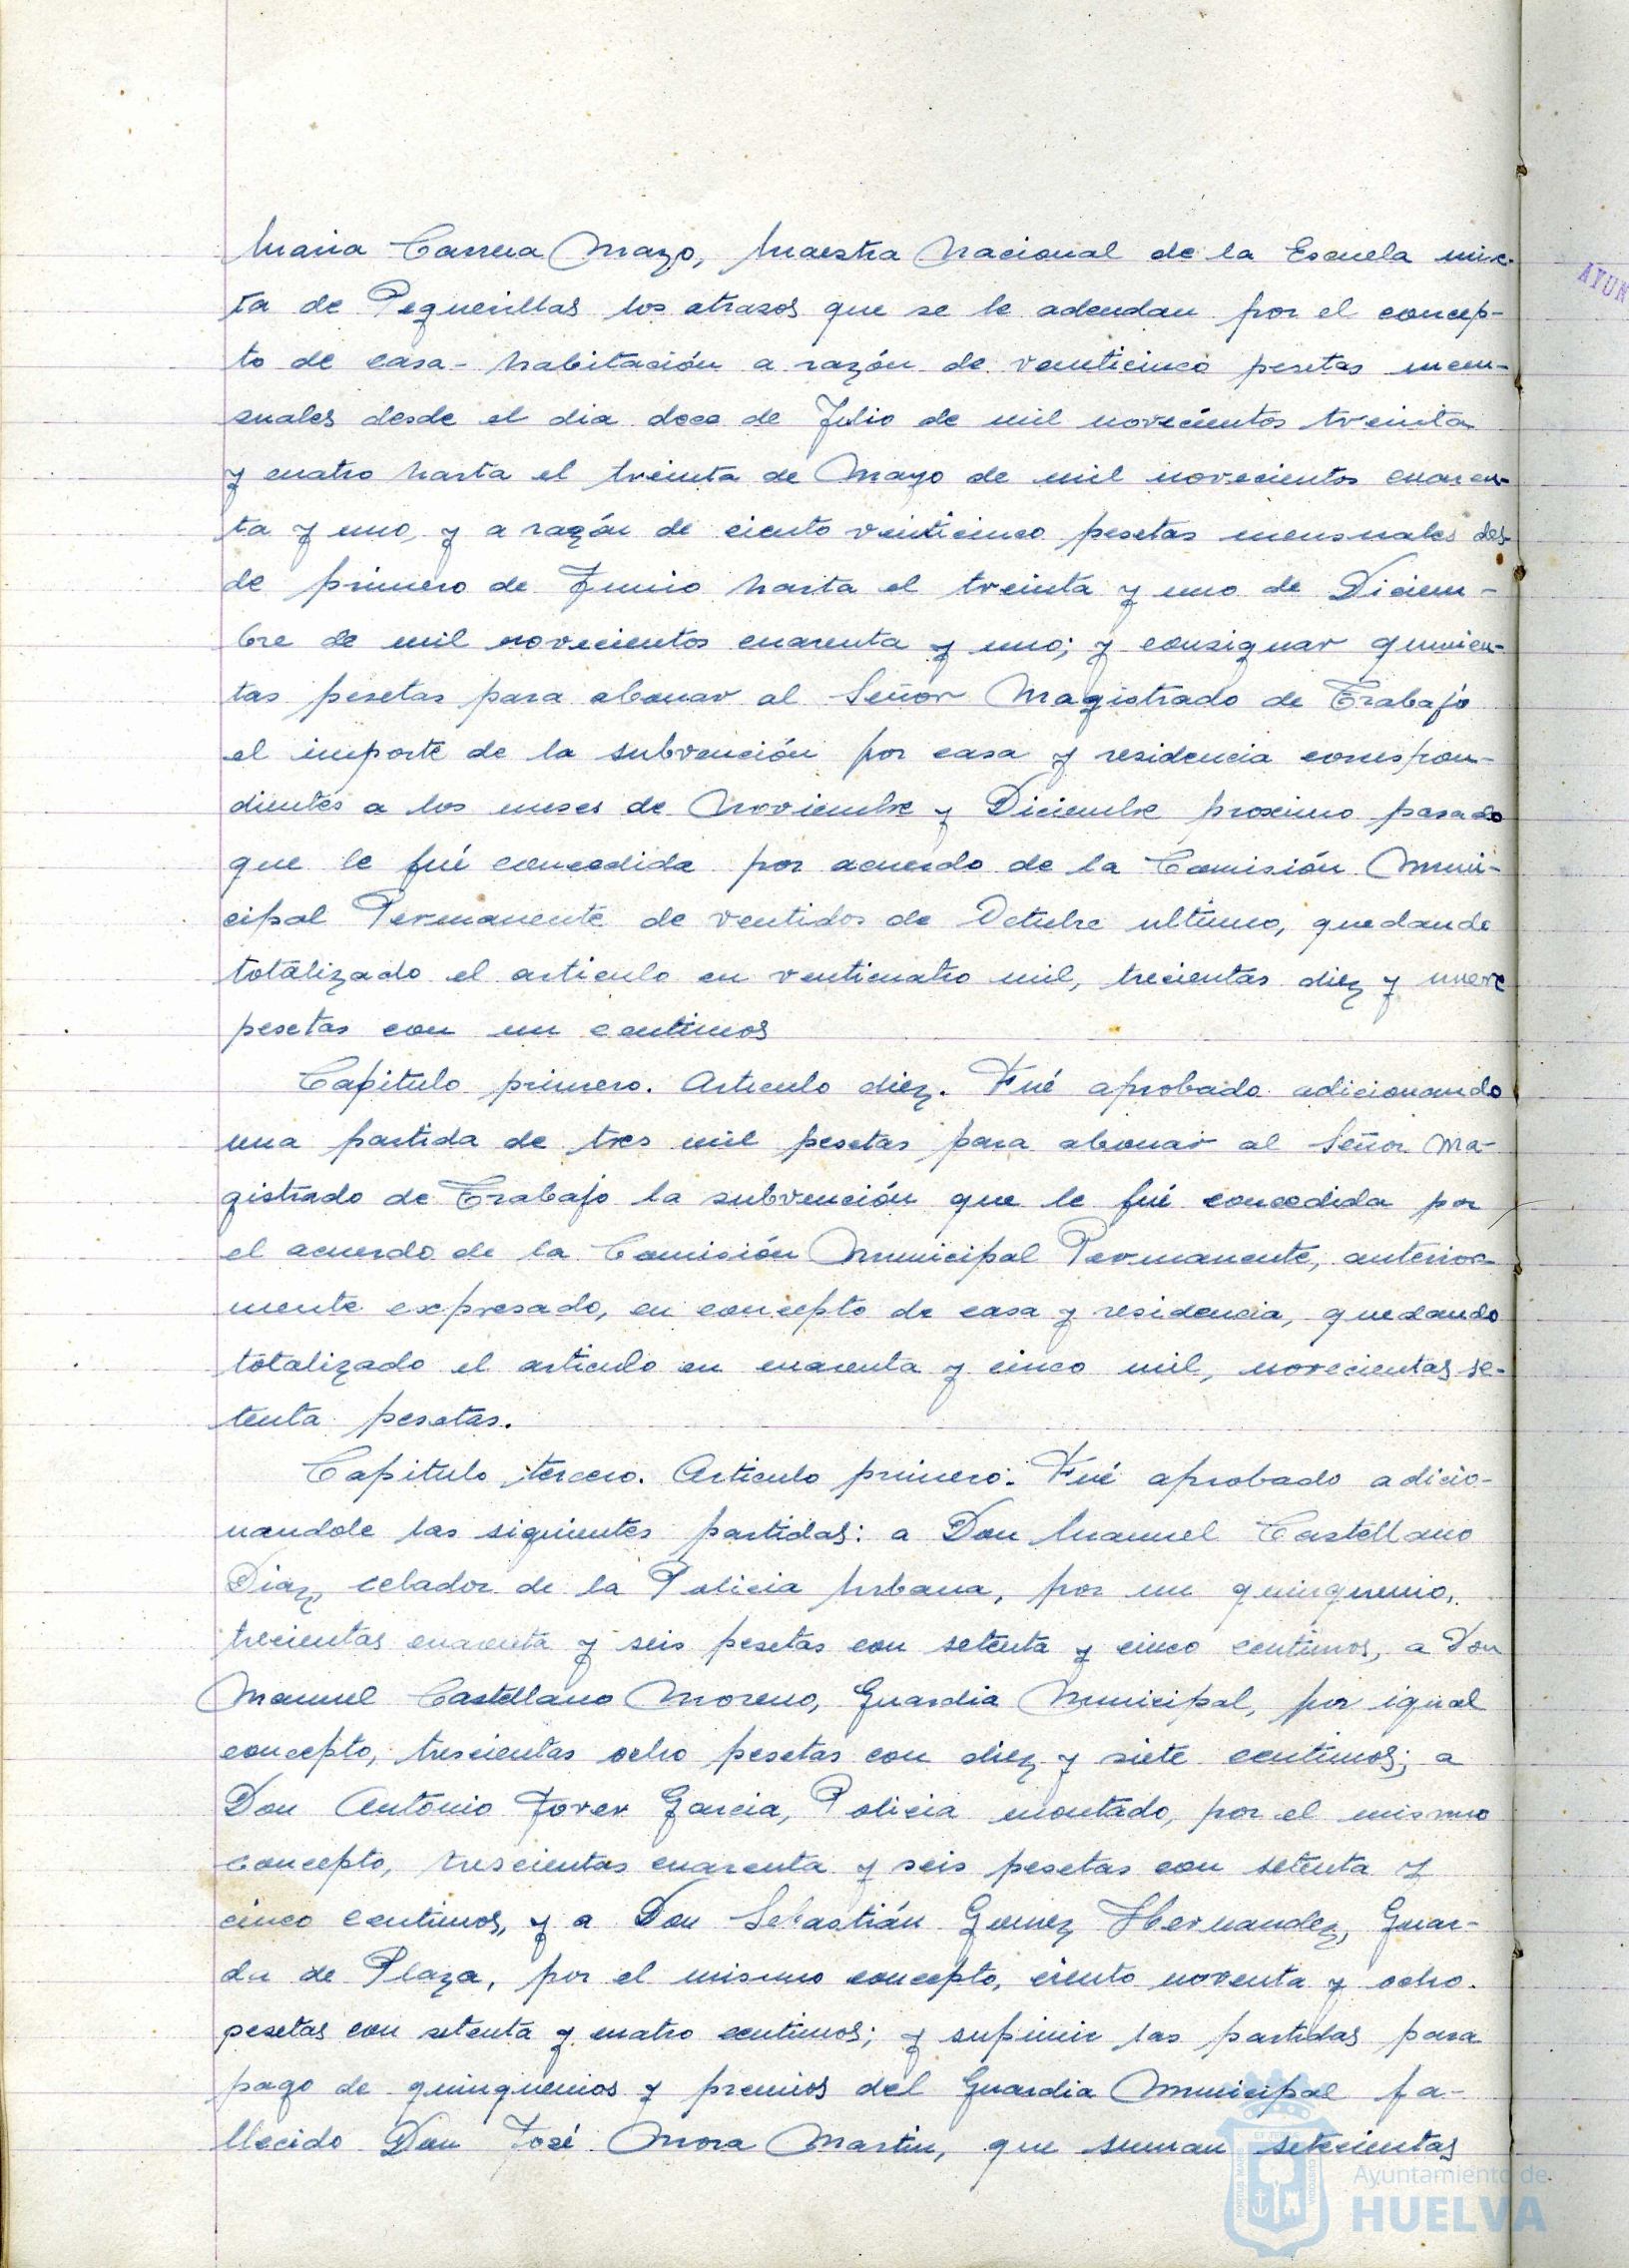 Maria Carrera Mazo, Maestra Nacional de la Escuela mix-
ta de Pequerillas los atrasos que se le adeudan por el concep-
to de casa-habitación a razón de veinticinco pesetas men-
suales desde el dia doce de Julio de mil novecientos treinta
y cuatro hasta el treinta de Mayo de mil novecientos cuaren-
ta y uno, y a razón de ciento veinticinco pesetas mensuales des-
de primero de Junio hasta el treinta y uno de Diciem-
bre de mil novecientos cuarenta y uno; y consignar quinien-
tas pesetas para abonar al Señor Magistrado de Trabajo
el importe de la subvención por casa y residencia correspon-
dientes a los meses de Noviembre y Diciembre proximo pasado
que le fué concedida por acuerdo de la Comisión Muni-
cipal Permanente de ventidos de Octubre ultimo, quedando
totalizado el articulo en venticuatro mil, trecientas diez y nueve
pesetas con un centimos
Capitulo primero. Articulo diez. Fué aprobado adicionando
una partida de tres mil pesetas para abonar al Señor Ma-
gistrado de Trabajo la subvención que le fué concedida por
el acuerdo de la Comisión Municipal Permanente, anterior-
mente expresado, en concepto de casa y residencia, quedando
totalizado el articulo en cuarenta y cinco mil, novecientas se-
tenta pesetas.
Capitulo tercero. Articulo primero. Fué aprobado adicio-
nandole las siguientes partidas: a Don Manuel Castellano
Diaz, celador de la Policia Urbana, por un quinquenio,
trecientas cuarenta y seis pesetas con setenta y cinco centimos, a Don
Manuel Castellano Moreno, Guardia Municipal, por igual
concepto, trescientas ocho pesetas con diez y siete centimos; a
Don Antonio Jover Garcia, Policia montado, por el mismo
concepto, trescientas cuarenta y seis pesetas con setenta y
cinco centimos, y a Don Sebastián Gomez Hernandez, Guar-
da de Plaza, por el mismo concepto, ciento noventa y ocho
pesetas con setenta y cuatro centimos; y supimir las partidas para
pago de quinquenios y premios del Guardia Municipal fa-
llecido Don José Mora Martin, que suman setecientas
AYUN
Ayuntamiento de
HUELVA